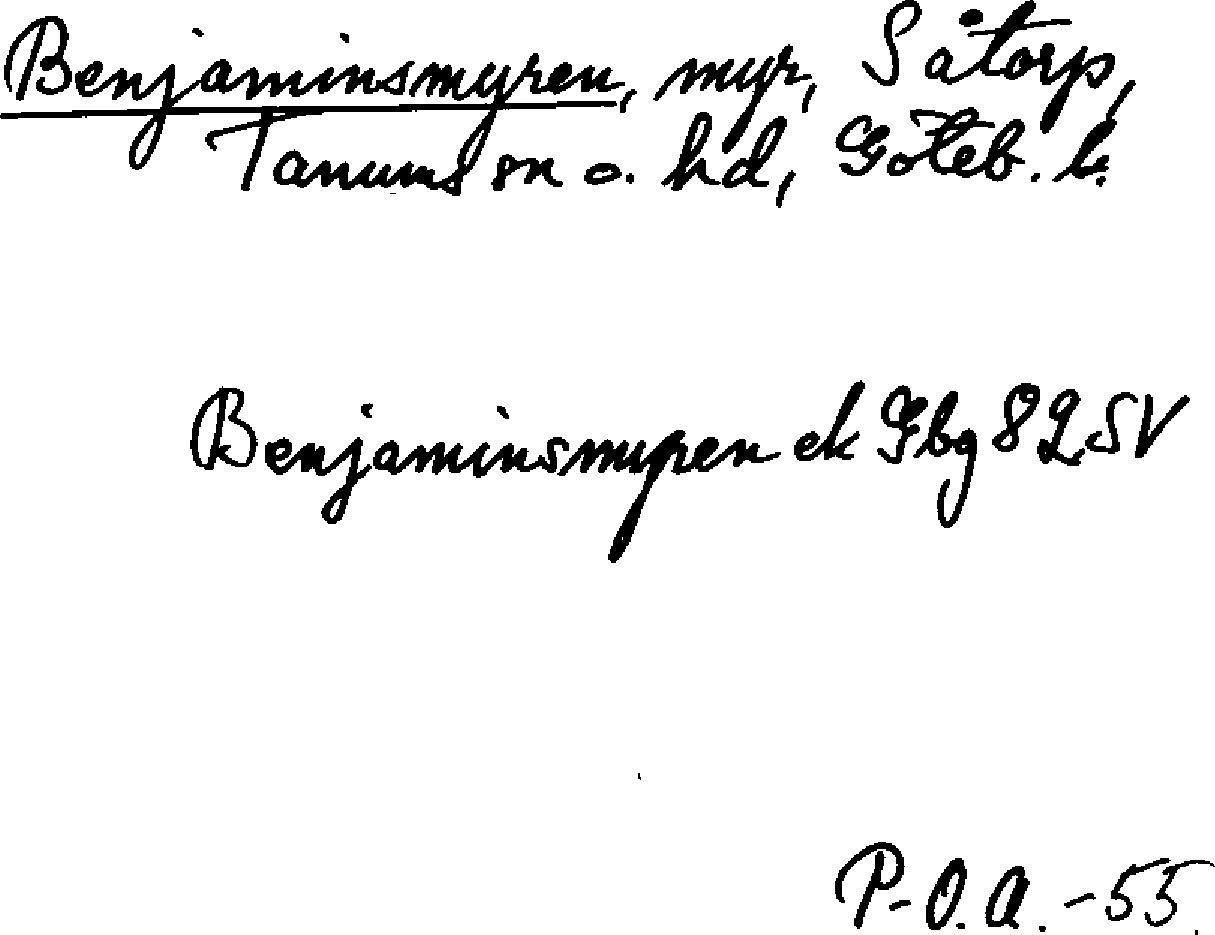 Benjaminsmyren, myr, Såtorp,
Tanums sn o. hd, Göteb. l.
Benjaminsmyren ek Gbg 82 SV
P-O.A. -55.